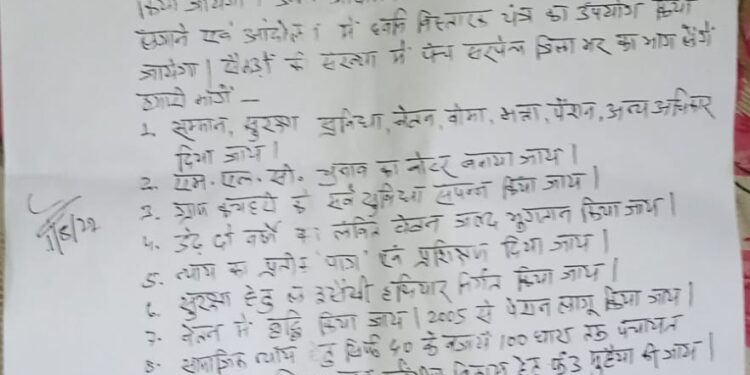 किया जायेगा।
लगाने एवं आंदोलन में ध्वनि विस्तारक यंत्र का उपयोग किया
जायेगा। सैकड़ों के संख्या में पंच सरपंच जिला भर का भाग लेंगे
हमारी मांगें —
1. सम्मान, सुरक्षा सुविधा, वेतन, बीमा, भत्ता, पेंशन, अन्य अधिकार
दिया जाय।
2. एम. एल. सी. चुनाव का वोटर बनाया जाय।
3. ग्राम कचहरी को सर्व सुविधा संपन्न किया जाय।
4. डेढ़ दो वर्षों का लंबित वेतन जल्द भुगतान किया जाय।
5. न्याय का प्रतीक पाग एवं प्रशिक्षण दिया जाय।
6. सुरक्षा हेतु हथियार निर्गत किया जाय।
7. वेतन में वृद्धि किया जाय। 2005 से पेंशन लागू किया जाय।
8. सामाजिक न्याय हेतु सिर्फ 40 के बजाय 100 धारा तक पंचायत
हेतु फंड मुहैया की जाय।